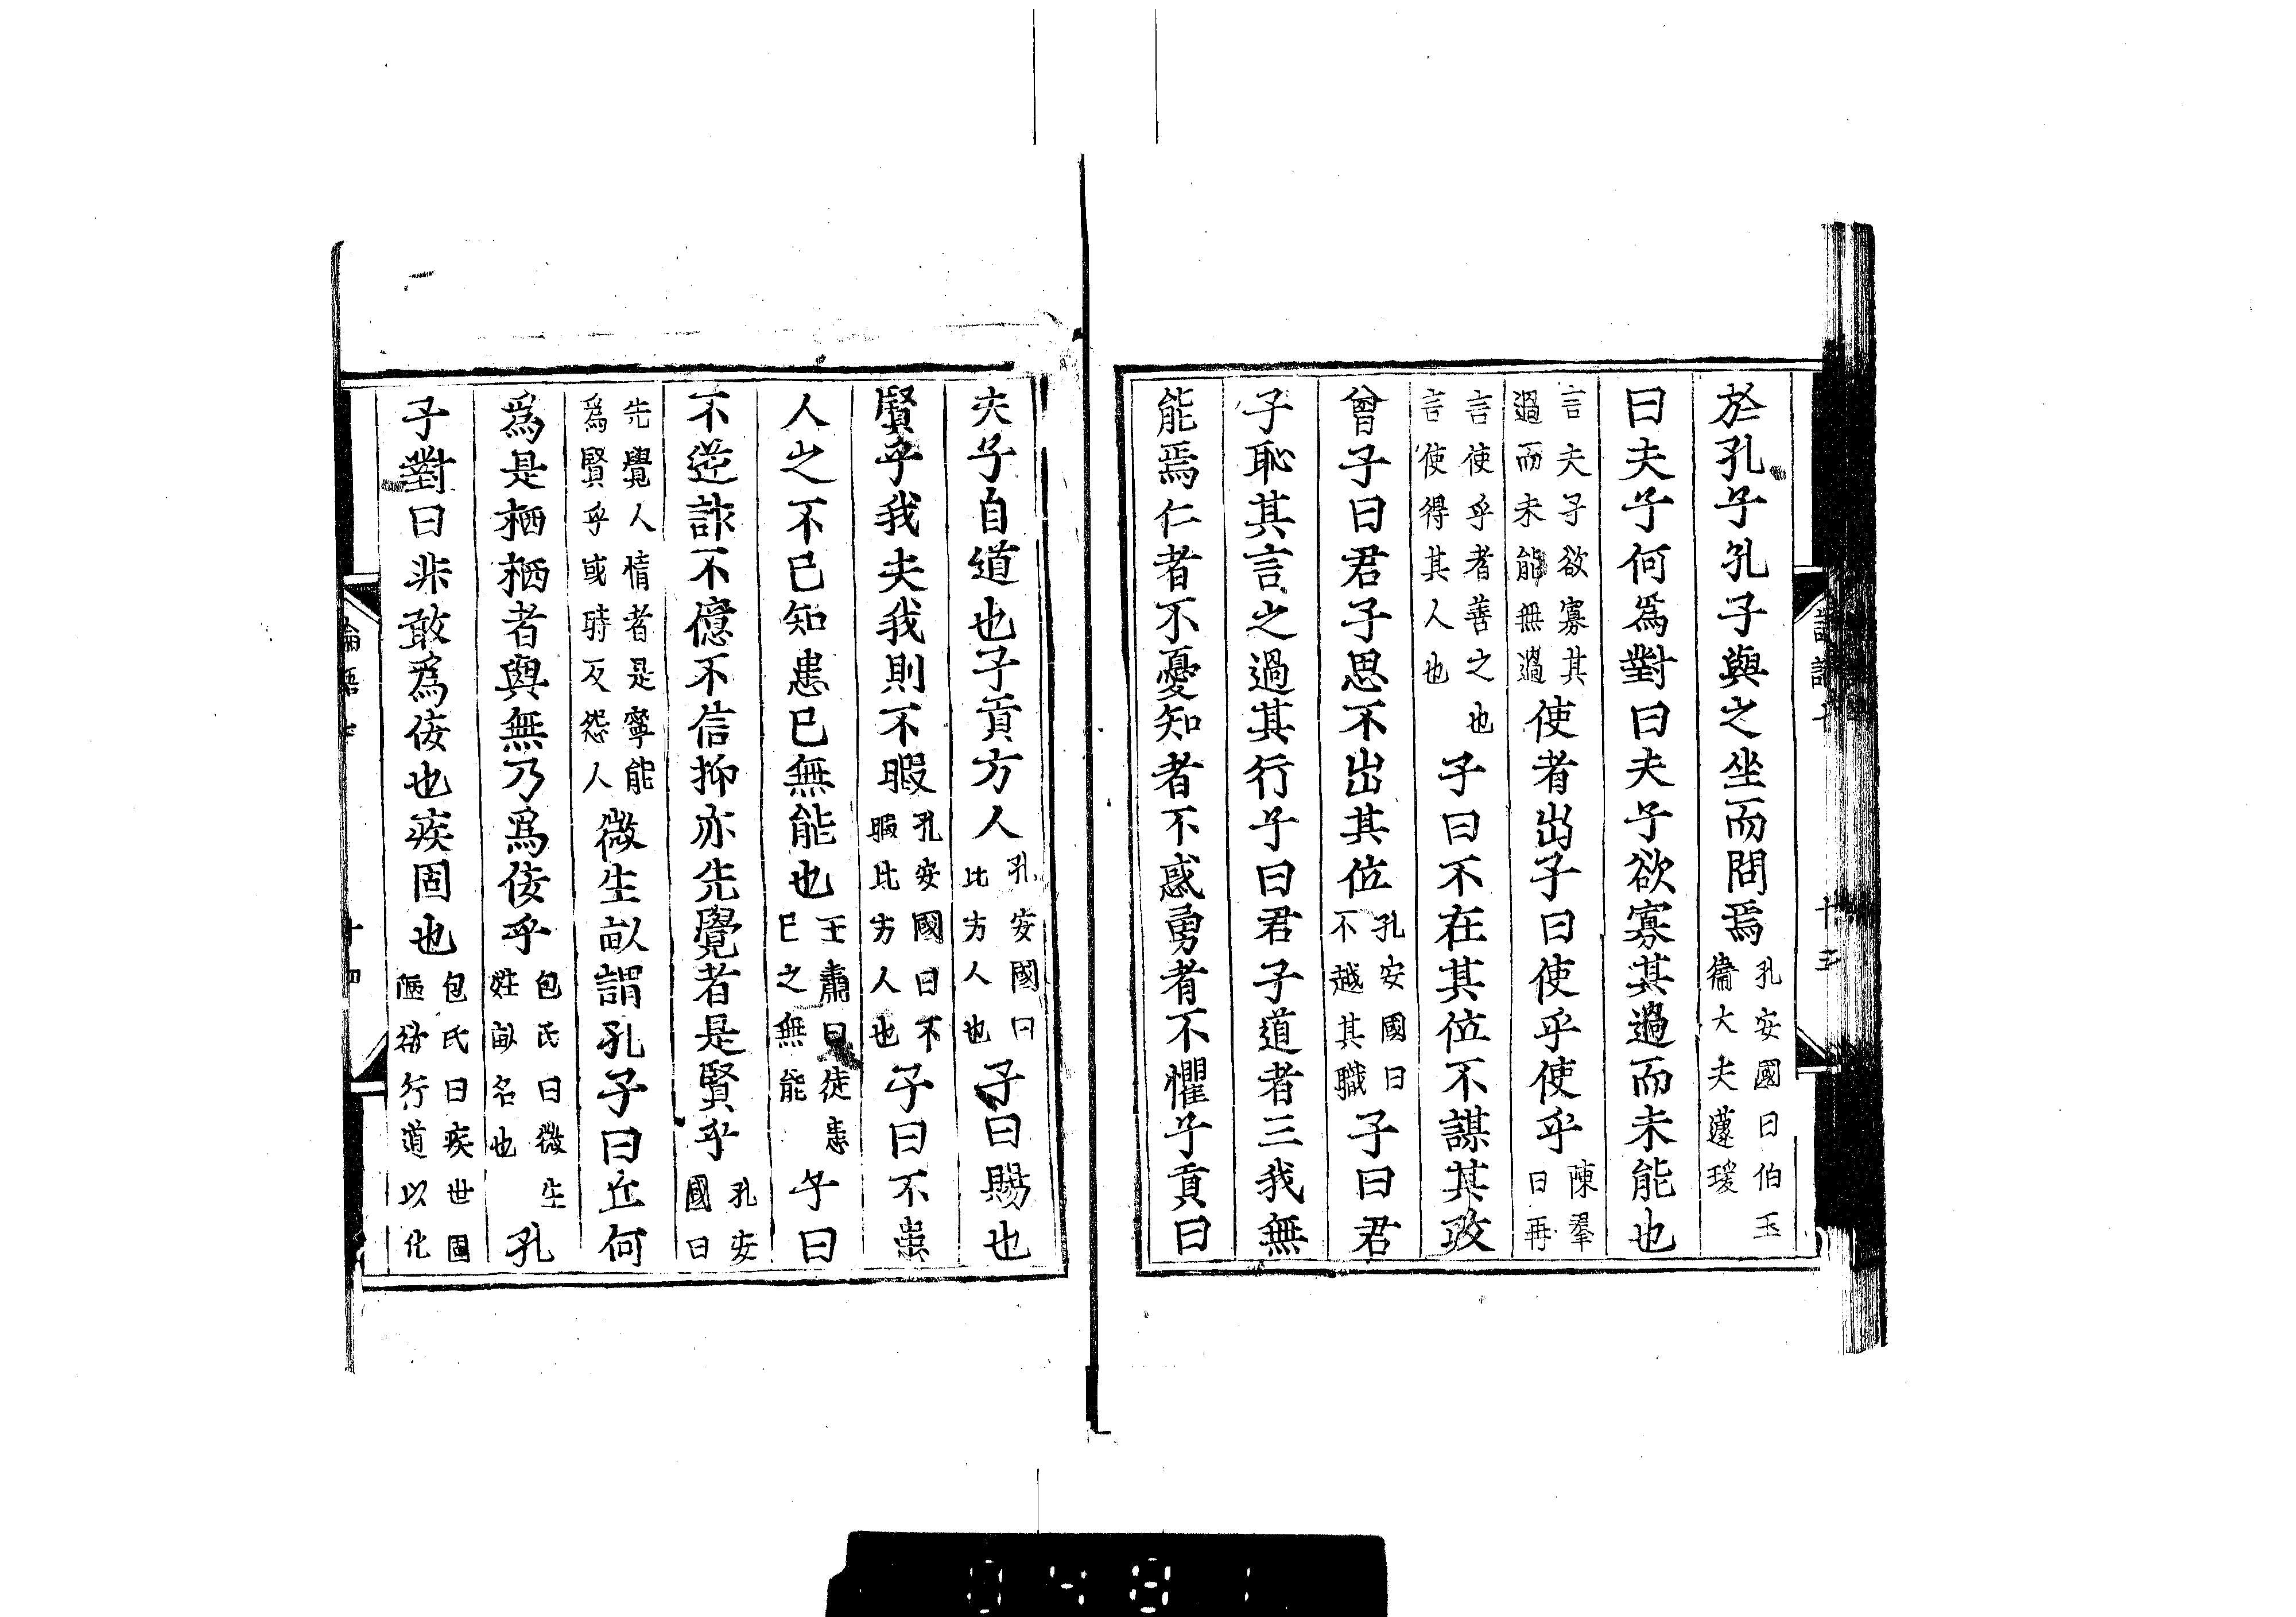 於孔子孔子與之坐而問焉孔安國曰伯玉衞大夫蘧瑗
曰夫子何爲對曰夫子欲寡其過而未能也
言夫子欲寡其過而未能無過使者出子曰使乎使乎陳羣曰再
言使乎者善之也言使得其人也子曰不在其位不謀其政
曾子曰君子思不出其位孔安國曰不越其職子曰君
子恥其言之過其行子曰君子道者三我無
能焉仁者不憂知者不惑勇者不懼子貢曰
夫子自道也子貢方人孔安國曰比方人也子曰賜也
賢乎我夫我則不暇孔安國曰不暇比方人也子曰不患
人之不己知患己無能也王肅曰徒患己之無能子曰
不逆詐不億不信抑亦先覺者是賢乎孔安國曰
先覺人情者是寧能爲賢乎或時反怨人微生畝謂孔子曰丘何
爲是栖栖者與無乃爲佞乎包氏曰微生姓畝名也孔
子對曰非敢爲佞也疾固也包氏曰疾世固陋欲行道以化
論語七
十四
十三